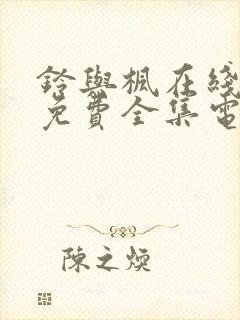 鈴與楓在綫
免費全集電
陳之煥